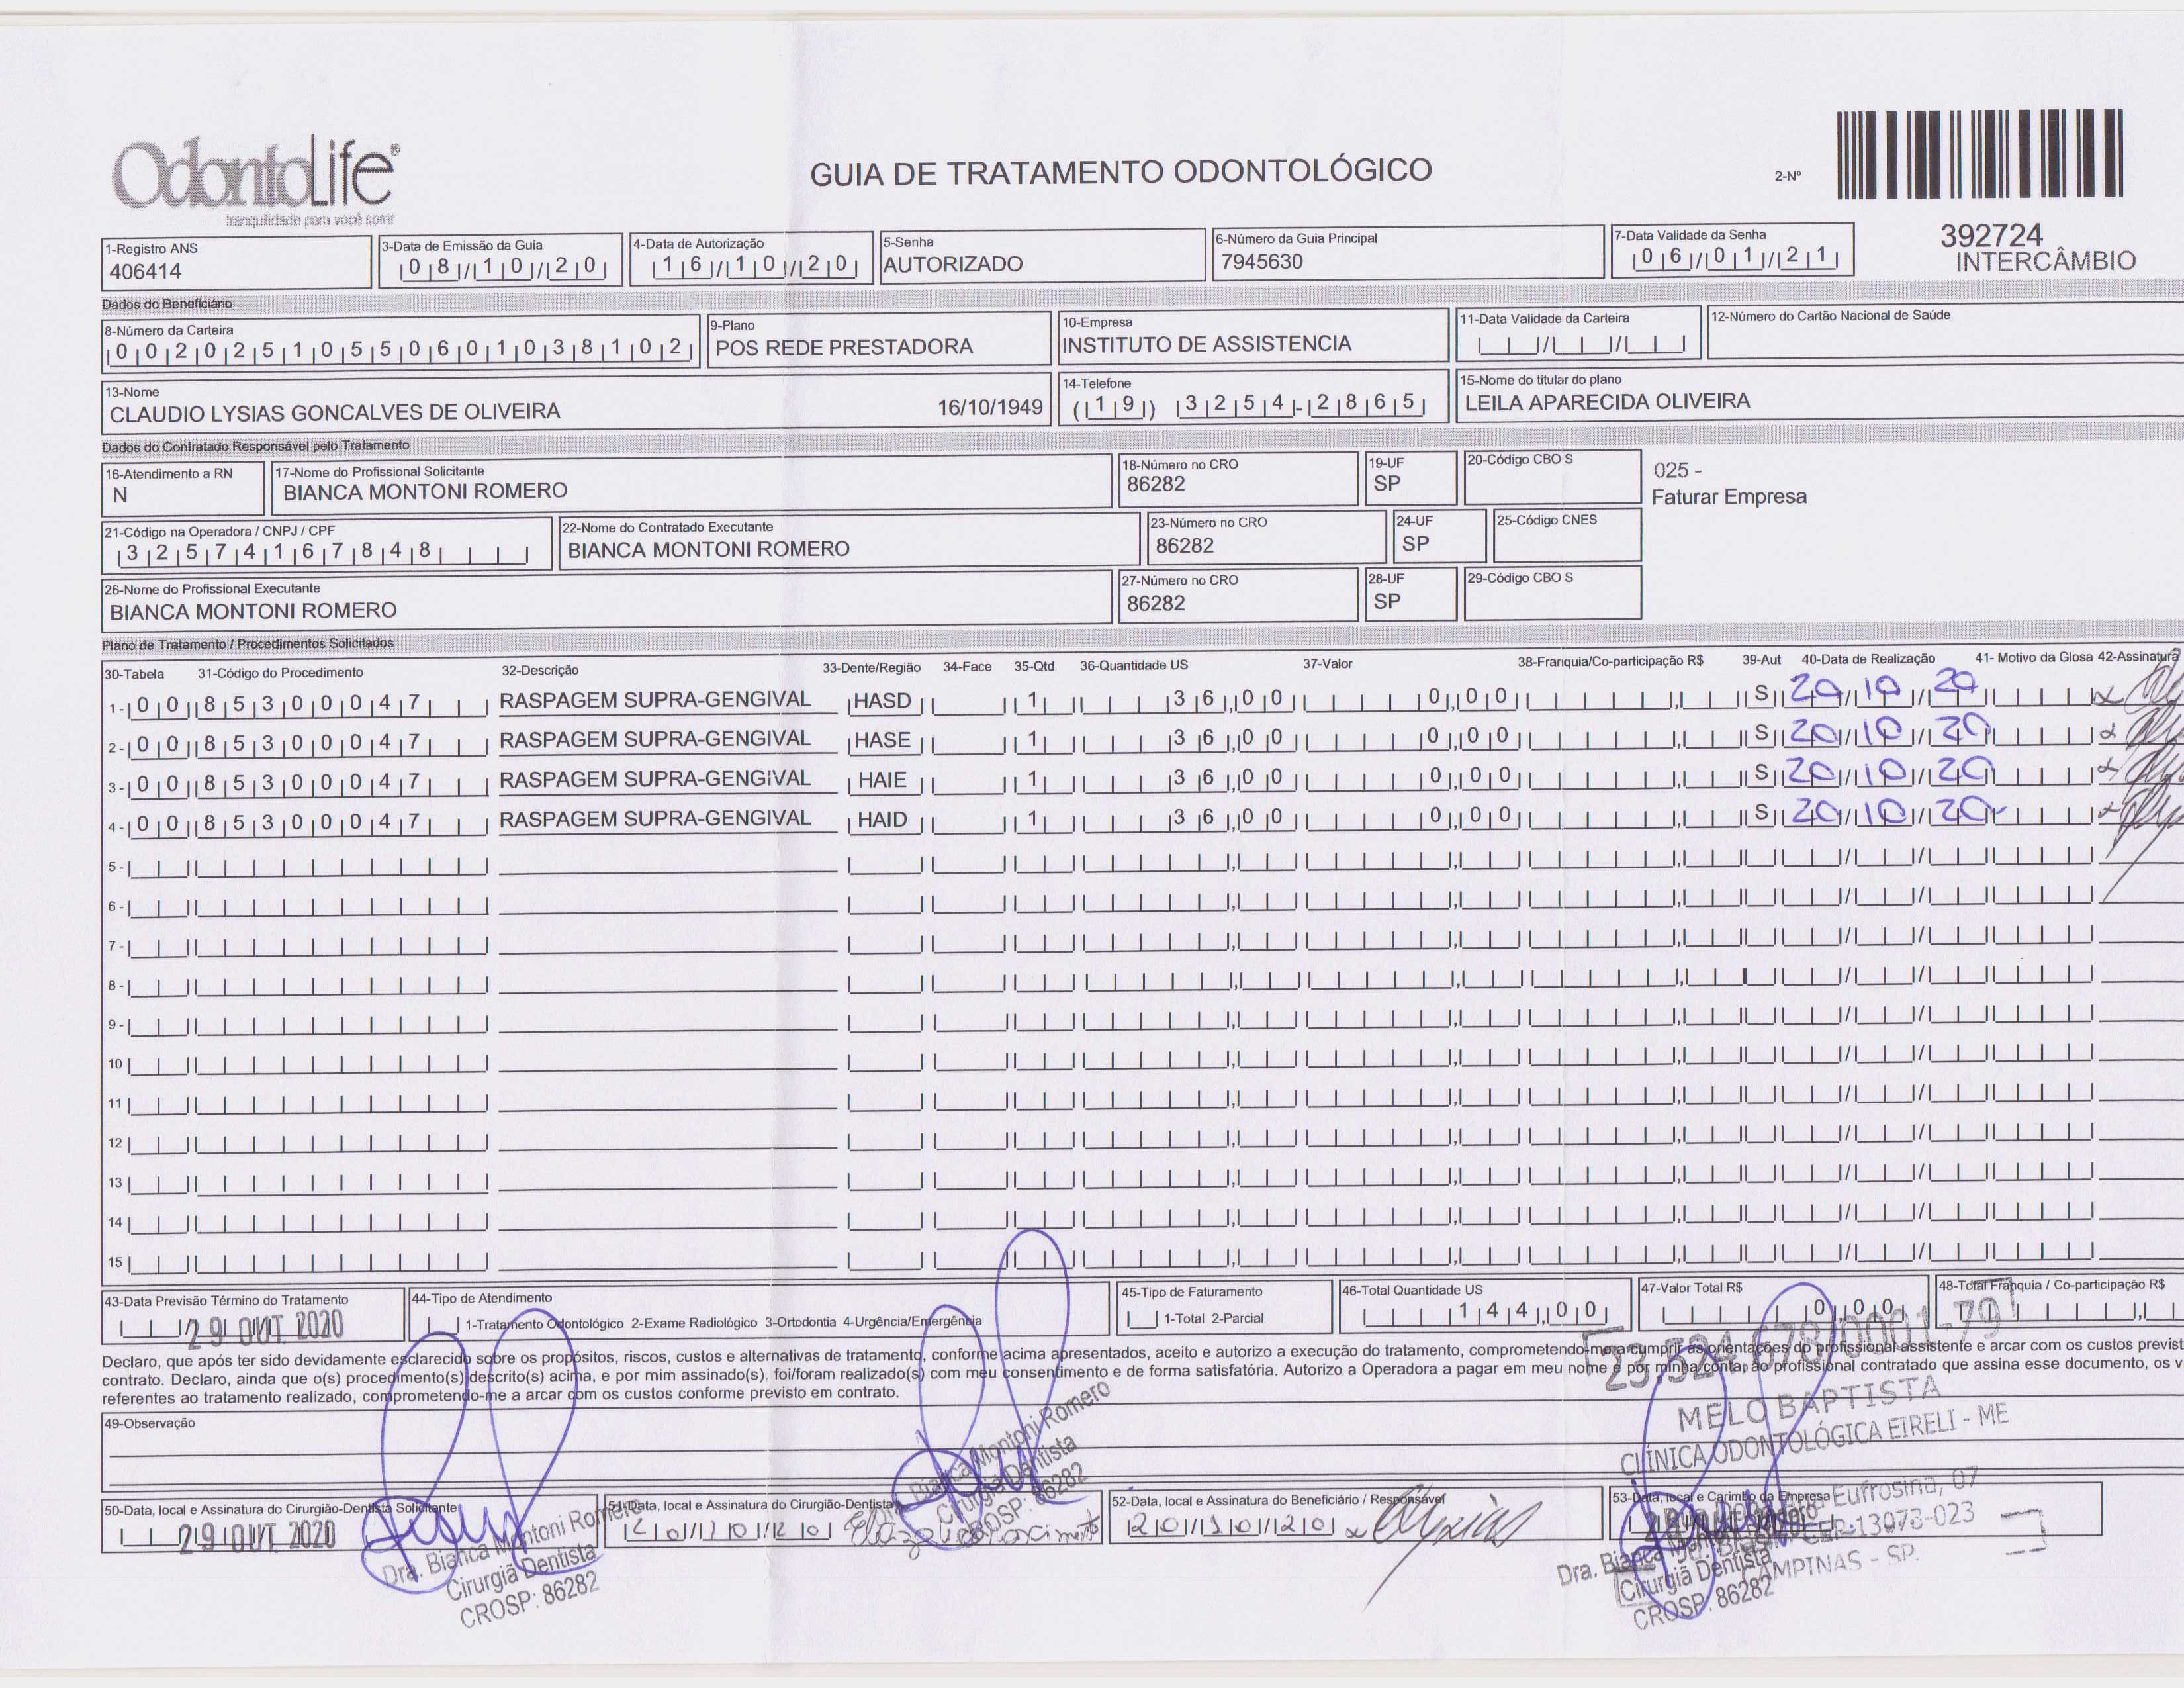 OdontoLife®
tranquilidade para você sorrir
GUIA DE TRATAMENTO ODONTOLÓGICO
2-Nº
392724
INTERCÂMBIO
1-Registro ANS
406414
3-Data de Emissão da Guia
08/10/20
4-Data de Autorização
16/10/20
5-Senha
AUTORIZADO
6-Número da Guia Principal
7945630
7-Data Validade da Senha
06/01/21
Dados do Beneficiário
8-Número da Carteira
00202510550601038102
9-Plano
POS REDE PRESTADORA
10-Empresa
INSTITUTO DE ASSISTENCIA
11-Data Validade da Carteira
12-Número do Cartão Nacional de Saúde
13-Nome
CLAUDIO LYSIAS GONCALVES DE OLIVEIRA 16/10/1949
14-Telefone
(19) 3254-2865
15-Nome do titular do plano
LEILA APARECIDA OLIVEIRA
Dados do Contratado Responsável pelo Tratamento
16-Atendimento a RN
N
17-Nome do Profissional Solicitante
BIANCA MONTONI ROMERO
18-Número no CRO
86282
19-UF
SP
20-Código CBO S
025 -
Faturar Empresa
21-Código na Operadora / CNPJ / CPF
32574167848
22-Nome do Contratado Executante
BIANCA MONTONI ROMERO
23-Número no CRO
86282
24-UF
SP
25-Código CNES
26-Nome do Profissional Executante
BIANCA MONTONI ROMERO
27-Número no CRO
86282
28-UF
SP
29-Código CBO S
Plano de Tratamento / Procedimentos Solicitados
30-Tabela 31-Código do Procedimento 32-Descrição 33-Dente/Região 34-Face 35-Qtd 36-Quantidade US 37-Valor 38-Franquia/Co-participação R$ 39-Aut 40-Data de Realização 41- Motivo da Glosa 42-Assinatura
1- 00 85300047 RASPAGEM SUPRA-GENGIVAL HASD 1 36,00 0,00 S 20/10/20
2- 00 85300047 RASPAGEM SUPRA-GENGIVAL HASE 1 36,00 0,00 S 20/10/20
3- 00 85300047 RASPAGEM SUPRA-GENGIVAL HAIE 1 36,00 0,00 S 20/10/20
4- 00 85300047 RASPAGEM SUPRA-GENGIVAL HAID 1 36,00 0,00 S 20/10/20
5-
6-
7-
8-
9-
10
11
12
13
14
15
43-Data Previsão Término do Tratamento
29 OUT. 2020
44-Tipo de Atendimento
1-Tratamento Odontológico 2-Exame Radiológico 3-Ortodontia 4-Urgência/Emergência
45-Tipo de Faturamento
1-Total 2-Parcial
46-Total Quantidade US
144,00
47-Valor Total R$
0,00
48-Total Franquia / Co-participação R$
Declaro, que após ter sido devidamente esclarecido sobre os propósitos, riscos, custos e alternativas de tratamento, conforme acima apresentados, aceito e autorizo a execução do tratamento, comprometendo-me a cumprir as orientações do profissional assistente e arcar com os custos previst
contrato. Declaro, ainda que o(s) procedimento(s) descrito(s) acima, e por mim assinado(s), foi/foram realizado(s) com meu consentimento e de forma satisfatória. Autorizo a Operadora a pagar em meu nome e por minha conta, ao profissional contratado que assina esse documento, os v
referentes ao tratamento realizado, comprometendo-me a arcar com os custos conforme previsto em contrato.
23.524.678/0001-79
MELO BAPTISTA
CLÍNICA ODONTOLÓGICA EIRELI - ME
49-Observação
50-Data, local e Assinatura do Cirurgião-Dentista Solicitante
29 OUT. 2020
Dra. Bianca Montoni Romero
Cirurgiã Dentista
CROSP: 86282
51-Data, local e Assinatura do Cirurgião-Dentista
20/10/20
Bianca Montoni Romero
Cirurgiã Dentista
CROSP: 86282
52-Data, local e Assinatura do Beneficiário / Responsável
20/10/20
53-Data, local e Carimbo da Empresa
Eufrosina, 07
CEP 13073-023
CAMPINAS - SP.
Dra. Bianca
Cirurgiã Dentista
CROSP: 86282